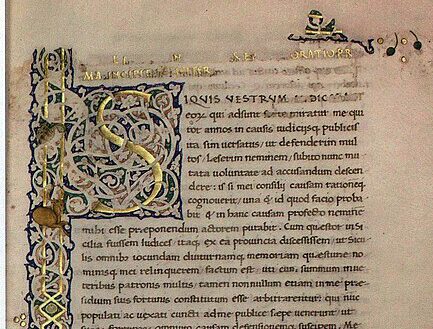 ORATIO PR
MA INCIPIT
S
IQVIS VESTRVM IVDIC
eorum qui adsunt forte miratur me qui
tot annos in causis iudiciisque publicis
ita sim versatus ut defenderim mul
tos Leserim neminem subito nunc mu
tata voluntate ad accusandum descen
dere is si mei consilii causam rationemq
cognoverit una & id quod facio proba
bit & in hanc causam profecto nemine
mihi esse preponendum actorem putabit Cum questor in Si
cilia fuissem Iudices itaq ex ea provincia discessissem ut Sicu
lis omnibus iocundam diuturnamq memoriam questure no
minisq mei relinquerem factum est uti cum summum in ve
teribus patronis multis tamen nonnullum etiam in me pre
sidium suis fortunis constitutum esse arbitrarentur qui nunc
populati ac vexati cuncti ad me publice sepe venerunt ut
suarum fortunarum omnium causam defensionemq susciperem Me